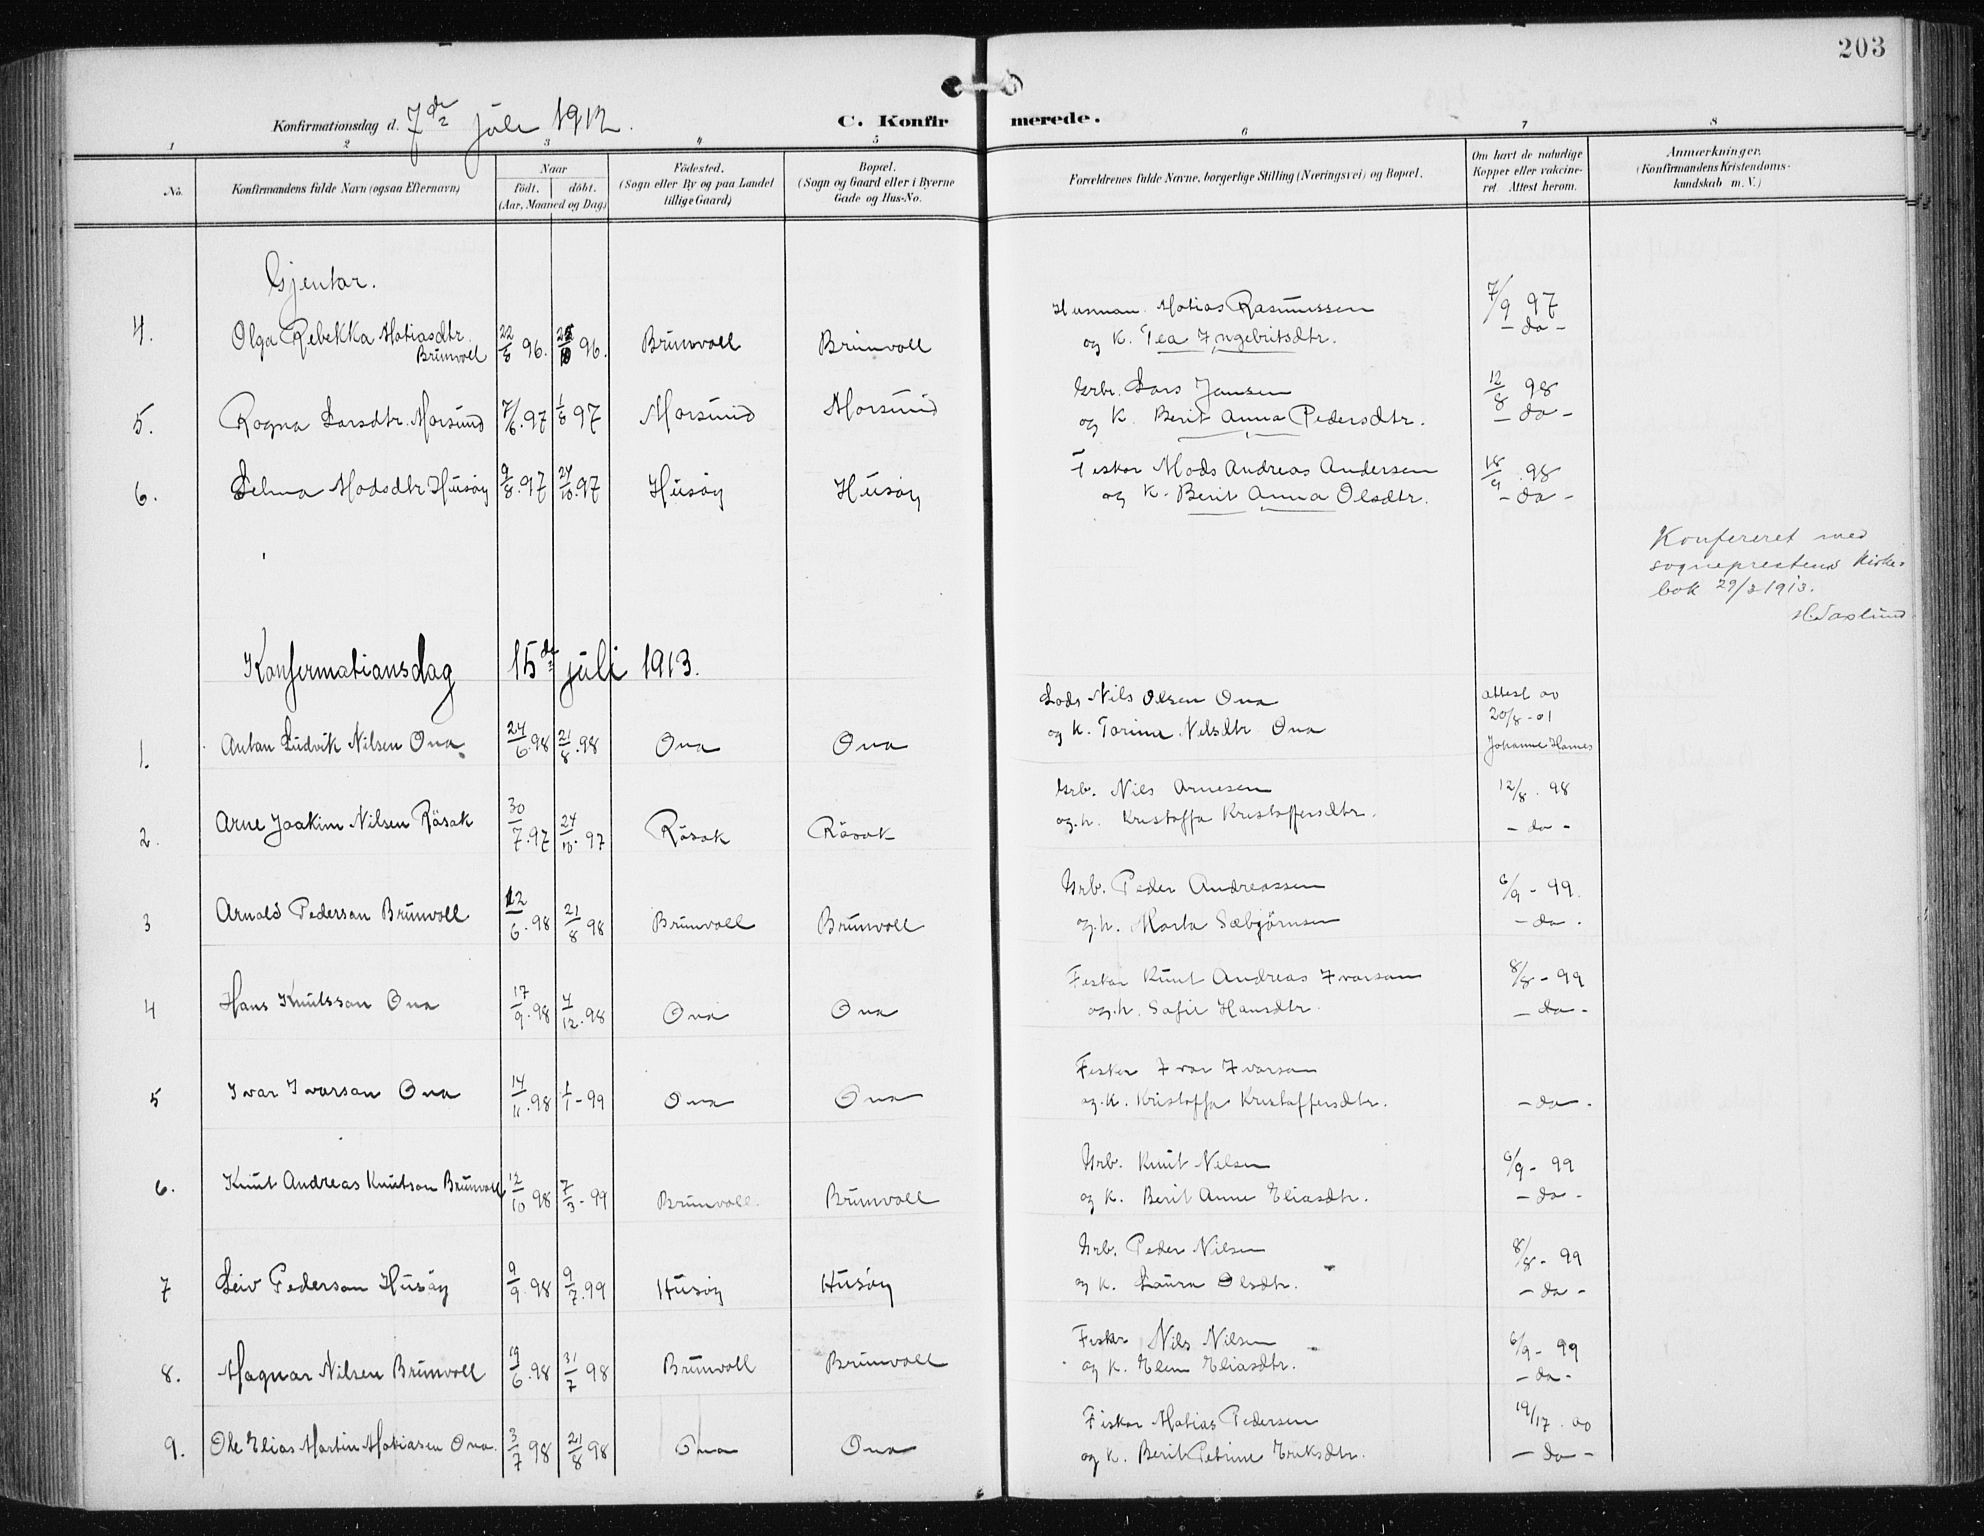 203
Konfirmationsdag d. 7de juli 1912.
C. Konfirmerede.
1 2 3 4 5 6 7 8
No.
Konfirmandens fulde Navn (ogsaa Efternavn)
Naar
födt. döbt.
(Aar, Maaned og Dag)
Födested.
(Sogn eller By og paa Landet
tillige Gaard)
Bopæl.
(Sogn og Gaard eller i Byerne
Gade og Hus-No.
Forældrenes fulde Navne, borgerlige Stilling (Næringsvei) og Bopæl.
Om havt de naturlige
Kopper eller vakcine-
ret. Attest herom.
Anmærkninger.
(Konfirmandens Kristendoms-
kundskab m. V.)
Gjentor.
4. Olga Rebekka Matiasdtr. Brunvoll 22/8 96. 96. Brunvoll Brunvoll
Husman Matias Rasmussen 7/9 97
og K. Tea Ingebritsdtr. - da -
5. Ragna Larsdtr. Morsund 7/6.97 1/8 97 Morsund Morsund
Grbr. Lars Jensen 12/8 98
og K. Berit Anna Pedersdtr. - da -
6. Selma Madsdtr. Husøy 9/8.97 24/10.97 Husøy Husøy
Fiskar Mads Andreas Andersen 98
og K. Berit Anna Olsdtr. - da -
Konfereret med
sogneprestens Kirke-
bok 29/3 1913.
Konfermationsdag 15de juli 1913.
1. Antan Ludvik Nilsen Ona 24/6.98 21/8.98 Ona Ona
Lods Nils Olsen Ona
og K. Torina Nilsdtr Ona
attest av
20/8-01
Johanne Harnes
2. Arne Joakim Nilsen Råsok 30/7.97 24/10.97 Råsok Råsok
Grb. Nils Arnesen 12/8. 98
og h. Kristoffa Kristoffersdtr. - da -
3 Arnold Pederson Brunvoll 12/6.98 21/8 98 Brunvoll Brunvoll
Grb. Peder Andreassen 6/9 - 99.
og h. Marta Sæbjörnsen - da .
4 Hans Knutsson Ona 17/9.98 4/12.98 Ona Ona
Fiskar Knut Andreas Ivarson 8/8 - 99
og h. Safie Hansdtr. - da -
5 Ivar Ivarson Ona 14/11.98 1/1 - 99 Ona Ona
Fisker Ivar Ivarson
og K. Kristoffa Kristoffersdtr. - da -
6. Knut Andreas Knutson Brunvoll 12/10 98 7/3 - 99 Brunvoll. Brunvoll
Grb. Knut Nilsen 6/9 - 99
og K. Berit Anne Eliasdtr. - da -
7 Leiv Pederson Husøy 9/9.98 9/7.99 Husøy Husøy
Grb. Peder Nilsen 8/8 - 99
og K. Laura Olsdtr. - da -
8. Magnar Nilsen Brunvoll 19/6.98 31/7 98 Brunvoll Brunvoll
Fisker Nils Nilsen 6/9 - 99
og K. Elen Eliasdtr. - da -
9. Ole Elias Martin Matiasen Ona. 3/7 98 21/8 98 Ona Ona
Fiskar Matias Pedersen 19/17. 00
og K. Berit Petrine Eriksdtr. - da -